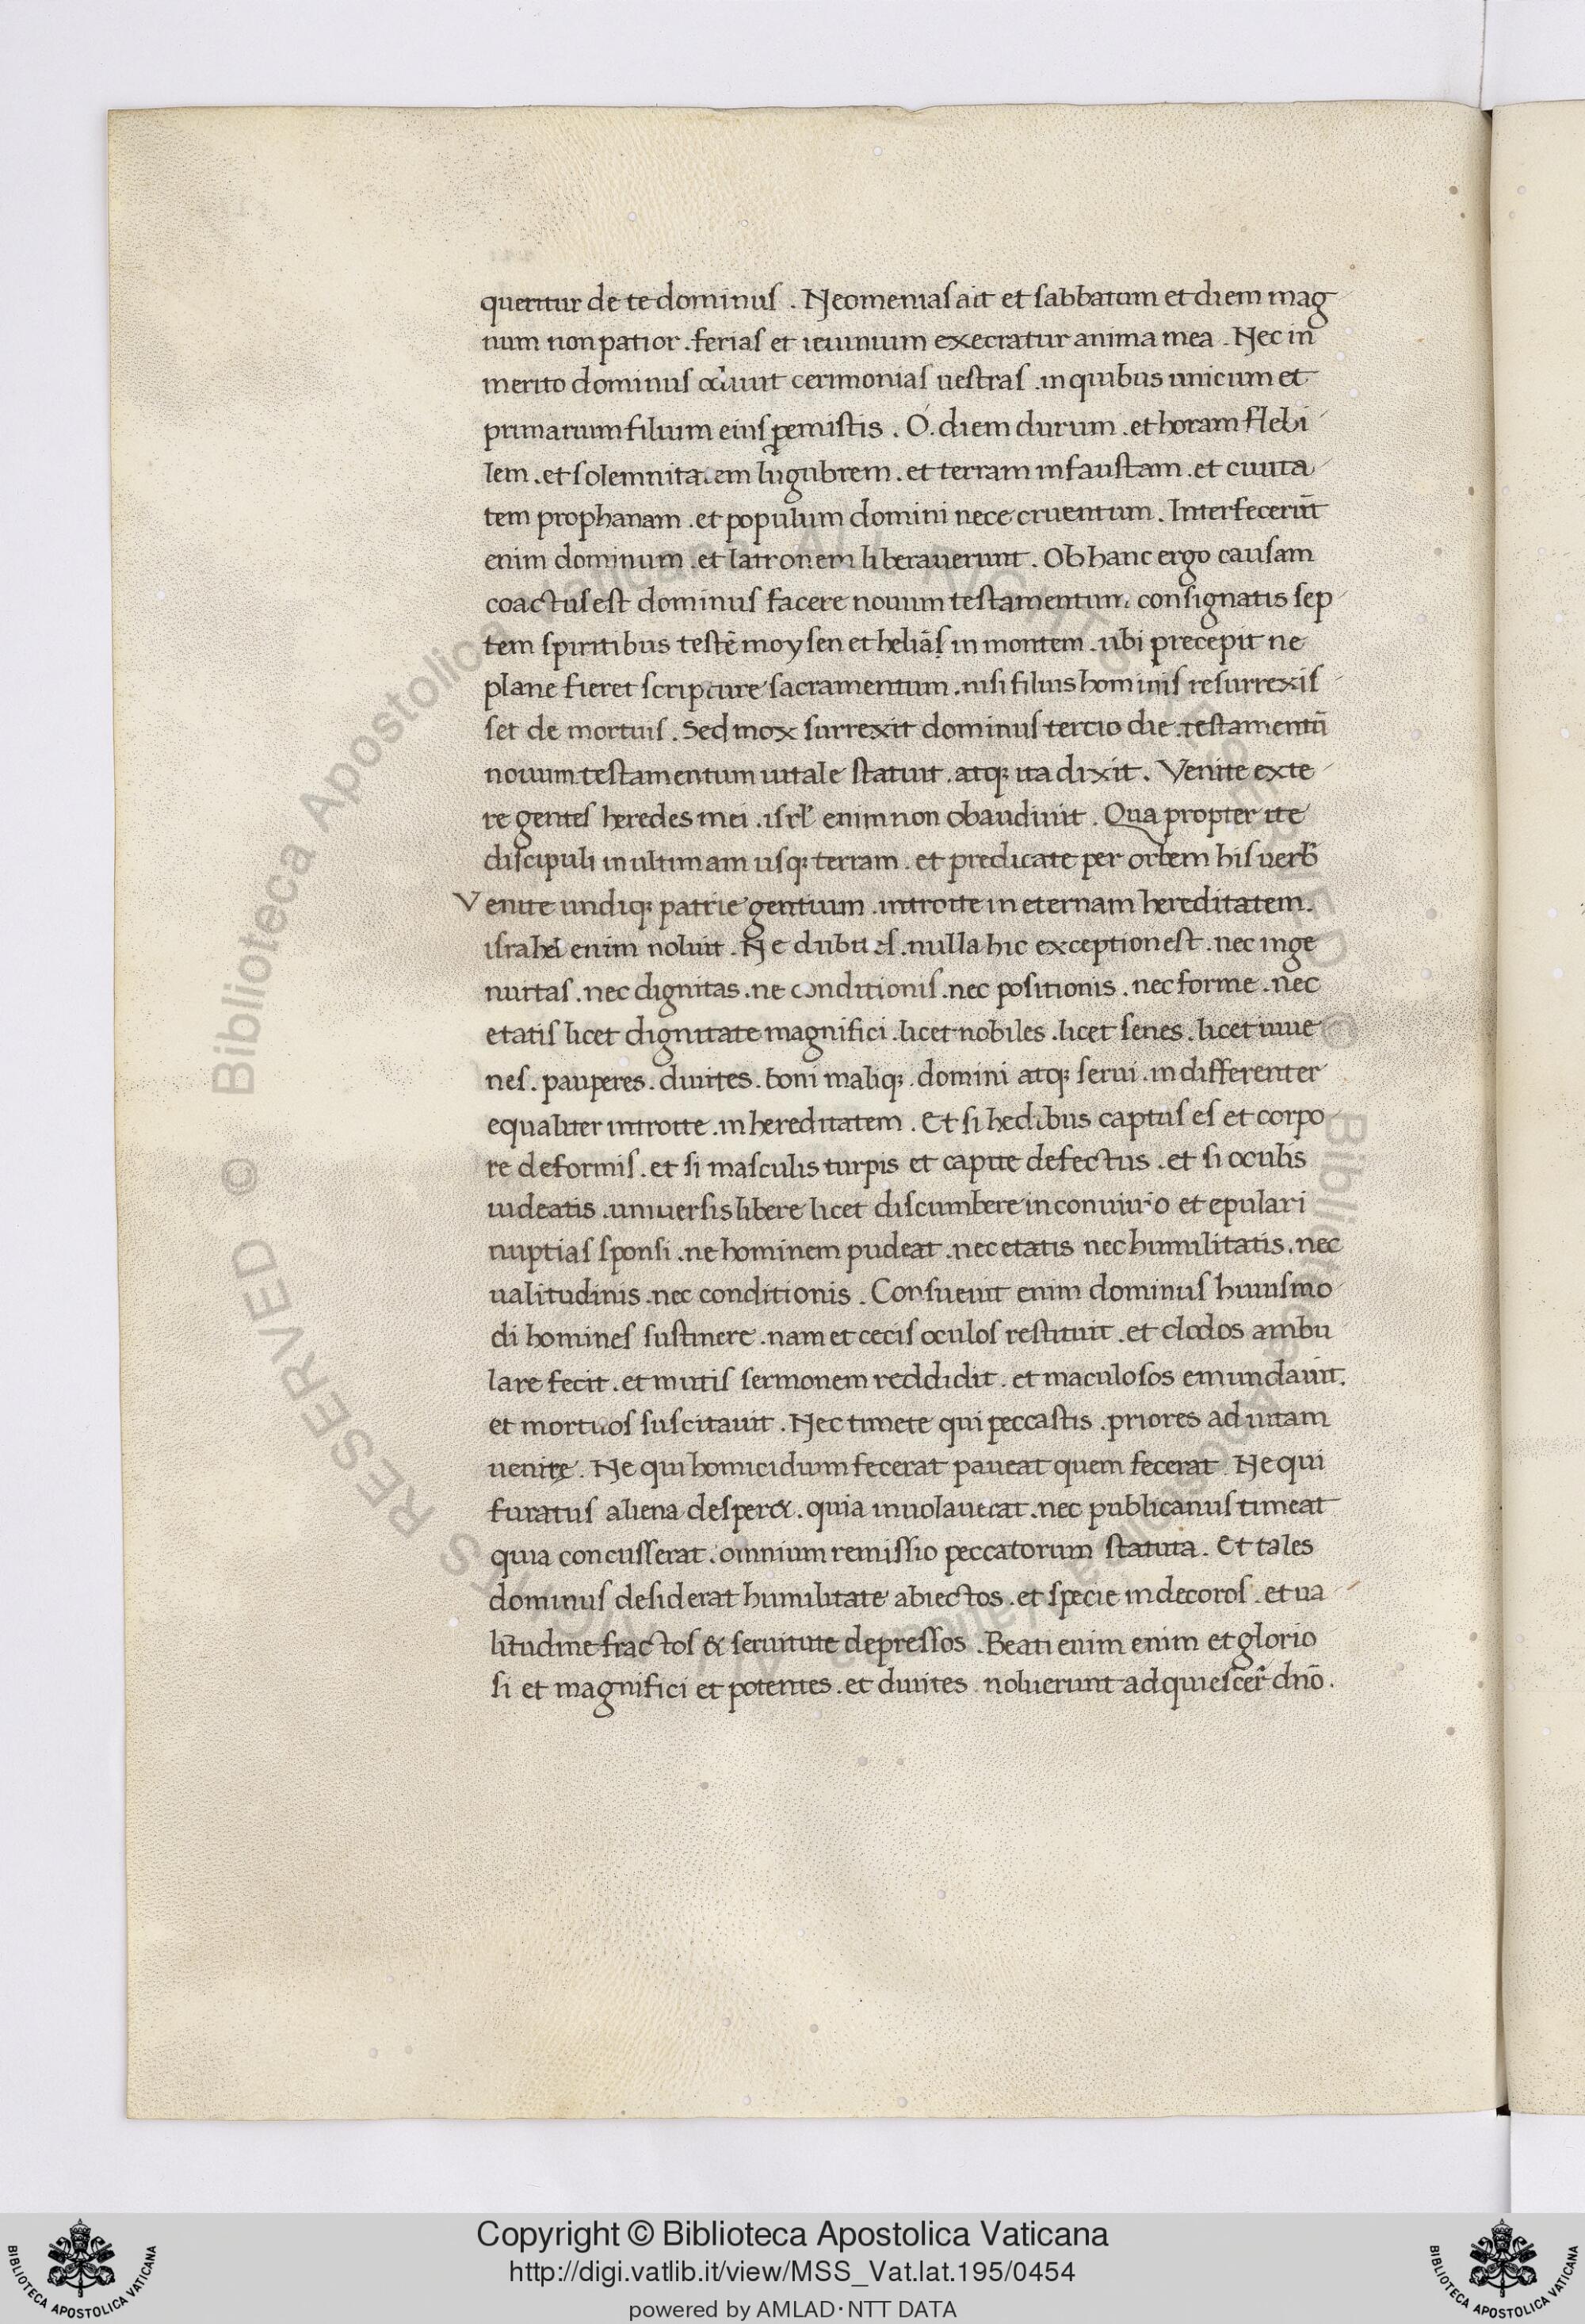 queritur de te dominus . Neomenias ait et sabbatum et diem mag
num non patior . ferias et ieiunium execratur anima mea . Nec in
merito dominus odiuit cerimonias uestras . in quibus unicum et
primarium filium eius ꝑemistis . O . diem durum . et horam flebi
lem . et solemnitatem lugubrem . et terram infaustam . et ciuita
tem prophanam . et populum domini nece cruentum . Interfecerūt
enim dominum . et latronem liberauerunt . Ob hanc ergo causam
coactus est dominus facere nouum testamentum . consignatis sep
tem spiritibus testē moysen et heliās in montem . ubi precepit ne
plane fieret scripture sacramentum . nisi filius hominis resurrexis
set de mortuis . Sed mox surrexit dominus tercio die . testamentū
nouum testamentum uitale statuit . atqꝫ ita dixit . Venite exte
re gentes heredes mei . isrl̓ enim non obaudiuit . Qua propter ite
discipuli in ultimam usqꝫ terram . et predicate per orbem his uerb̓
Venite undiqꝫ patrie gentium . introite in eternam hereditatem .
israhel enim noluit . Ne dubites . nulla hic exception est . nec inge
nuitas . nec dignitas . ne conditionis . nec positionis . nec forme . nec
etatis licet dignitate magnifici . licet nobiles . licet senes . licet iuue
nes . pauperes . diuites . boni maliqꝫ . domini atqꝫ serui . indifferenter
equaliter introite . in hereditatem . Et si hedibus captus es et corpo
re deformis . et si masculis turpis et capite defectus . et si oculis
uideatis . uniuersis libere licet discumbere in conuiuio et epulari
nuptias sponsi . ne hominem pudeat . nec etatis nec humilitatis . nec
ualitudinis . nec conditionis . Consueuit enim dominus huiusmo
di homines sustinere . nam et cecis oculos restituit . et clodos ambu
lare fecit . et mutis sermonem reddidit . et maculosos emundauit .
et mortuos suscitauit . Nec timete qui peccastis . priores ad uitam
uenire . Ne qui homicidium fecerat paueat quem fecerat . Ne qui
furatus aliena desper& . quia inuolauerat . nec publicanus timeat
quia concusserat . omnium remissio peccatorum statuta . Et tales
dominus desiderat humilitate abiectos . et specie indecoros . et ua
litudine fractos & seruitute depressos . Beati enim enim et glorio
si et magnifici et potentes . et diuites noluerunt adquiescer̄ dnō .
Copyright © Biblioteca Apostolica Vaticana
http://digi.vatlib.it/view/MSS_Vat.lat.195/0454
powered by AMLAD·NTT DATA
BIBLIOTECA APOSTOLICA VATICANA
BIBLIOTECA APOSTOLICA VATICANA